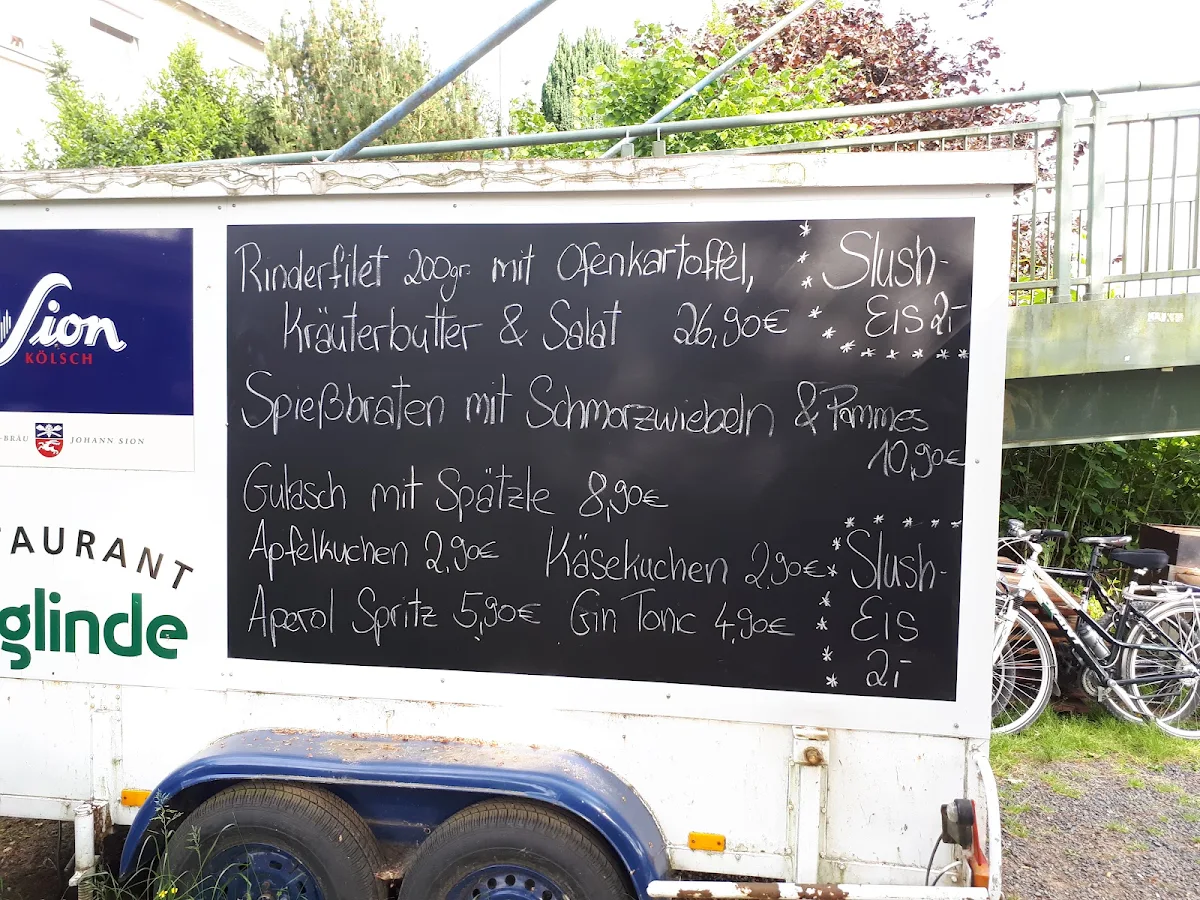 Sion
KÖLSCH
-BRÄU JOHANN SION
TAURANT
glinde
Rinderfilet 200gr. mit Ofenkartoffel,
Kräuterbutter & Salat 26,90€
Slush-
Eis 2,-
Spießbraten mit Schmorzwiebeln & Pommes
10,90€
Gulasch mit Spätzle 8,90€
Apfelkuchen 2,90€ Käsekuchen 2,90€
Aperol Spritz 5,90€ Gin Tonic 4,90€
Slush-
Eis
2,-